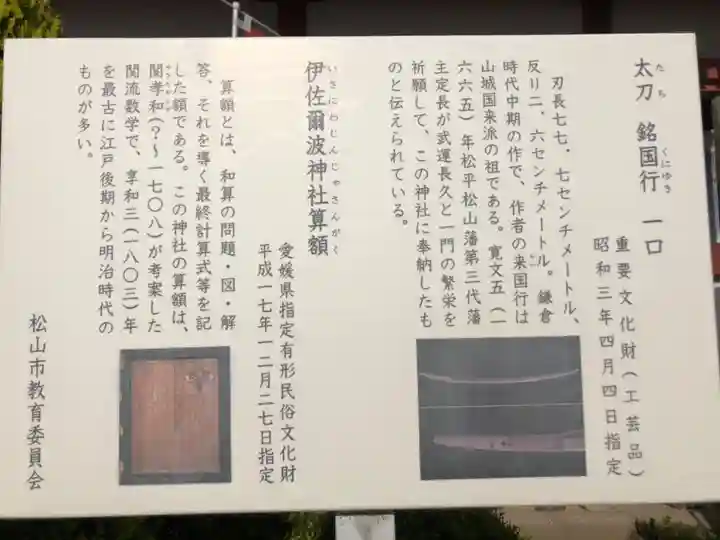 太刀 銘国行 一口
たち くにゆき
重要文化財（工芸品）
昭和三年四月四日指定
刃長七七．七センチメートル、
反り二．六センチメートル。鎌倉
時代中期の作で、作者の来国行は
らい
山城国来派の祖である。寛文五（一
六六五）年松平松山藩第三代藩
主定長が武運長久と一門の繁栄を
祈願して、この神社に奉納したも
のと伝えられている。
伊佐爾波神社算額
いさにわじんじゃさんがく
愛媛県指定有形民俗文化財
平成一七年一二月二七日指定
算額とは、和算の問題・図・解
答、それを導く最終計算式等を記
した額である。この神社の算額は、
関孝和（？～一七〇八）が考案した
関流数学で、享和三（一八〇三）年
を最古に江戸後期から明治時代の
ものが多い。
松山市教育委員会